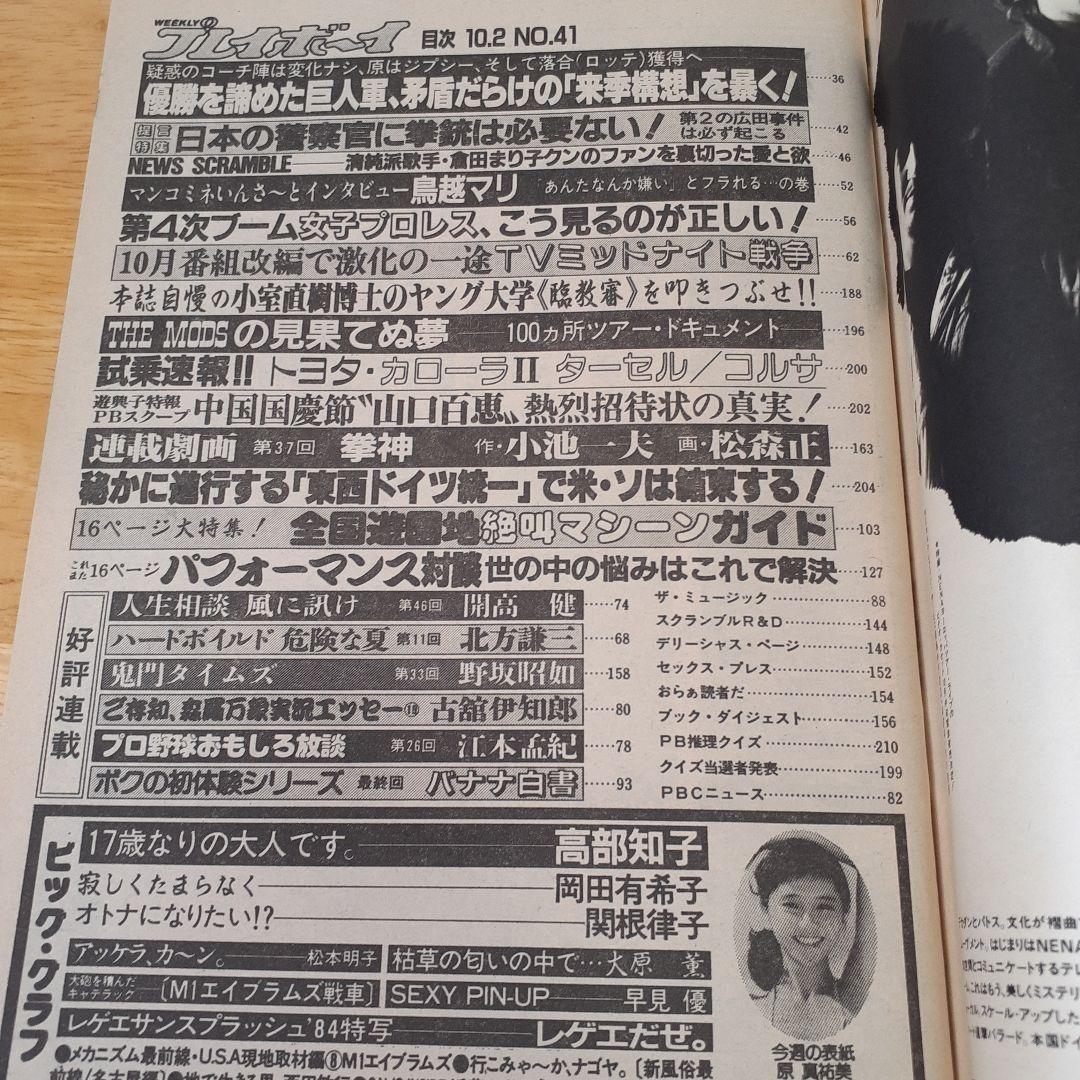 WEEKLYの
プレイボーイ 目次 10.2 NO.41
疑惑のコーチ陣は変化ナシ、原はジプシー、そして落合(ロッテ)獲得へ
優勝を諦めた巨人軍、矛盾だらけの「来季構想」を暴く! 36
提言特集 日本の警察官に拳銃は必要ない! 第2の広田事件は必ず起こる 42
NEWS SCRAMBLE 清純派歌手・倉田まり子クンのファンを裏切った愛と欲 46
マンコミネいんさ〜とインタビュー 鳥越マリ 「あんたなんか嫌い」とフラれる…の巻 52
第4次ブーム女子プロレス、こう見るのが正しい! 56
10月番組改編で激化の一途TVミッドナイト戦争 62
本誌自慢の小室直樹博士のヤング大学《臨教審》を叩きつぶせ!! 188
THE MODSの見果てぬ夢 100ヵ所ツアー・ドキュメント 196
試乗速報!! トヨタ・カローラII ターセル/コルサ 200
遊興子特報 PBスクープ 中国国慶節〝山口百恵〟熱烈招待状の真実! 202
連載劇画 第37回 拳神 作・小池一夫 画・松森正 163
秘かに進行する「東西ドイツ統一」で米・ソは結束する! 204
16ページ大特集! 全国遊園地絶叫マシーンガイド 103
これまた16ページ パフォーマンス対談 世の中の悩みはこれで解決 127
好評連載
人生相談 風に訊け 第46回 開高 健 74
ハードボイルド 危険な夏 第11回 北方謙三 68
鬼門タイムズ 第33回 野坂昭如 158
ご存知、森羅万象実況エッセー⑩ 古舘伊知郎 80
プロ野球おもしろ放談 第26回 江本孟紀 78
ボクの初体験シリーズ 最終回 バナナ白書 93
ザ・ミュージック 88
スクランブルR&D 144
デリーシャス・ページ 148
セックス・プレス 152
おらぁ読者だ 154
ブック・ダイジェスト 156
PB推理クイズ 210
クイズ当選者発表 199
PBCニュース 82
ビッグ・グラフ
17歳なりの大人です。 高部知子
寂しくたまらなく 岡田有希子
オトナになりたい!? 関根律子
アッケラ、カ〜ン。 松本明子
枯草の匂いの中で… 大原 薫
大砲を積んだキャデラック [M1エイブラムズ戦車]
SEXY PIN-UP 早見 優
レゲエサンスプラッシュ'84特写 レゲエだぜ。
●メカニズム最前線・U.S.A現地取材編⑧M1エイブラムズ●行こみゃ〜か、ナゴヤ。[新風俗最
今週の表紙
原 真祐美
文化が褶曲
はじまりはNENA
コミュニケートするテレ
これはもう、美しくミステリ
スケール・アップした
バラード。本国ドイ